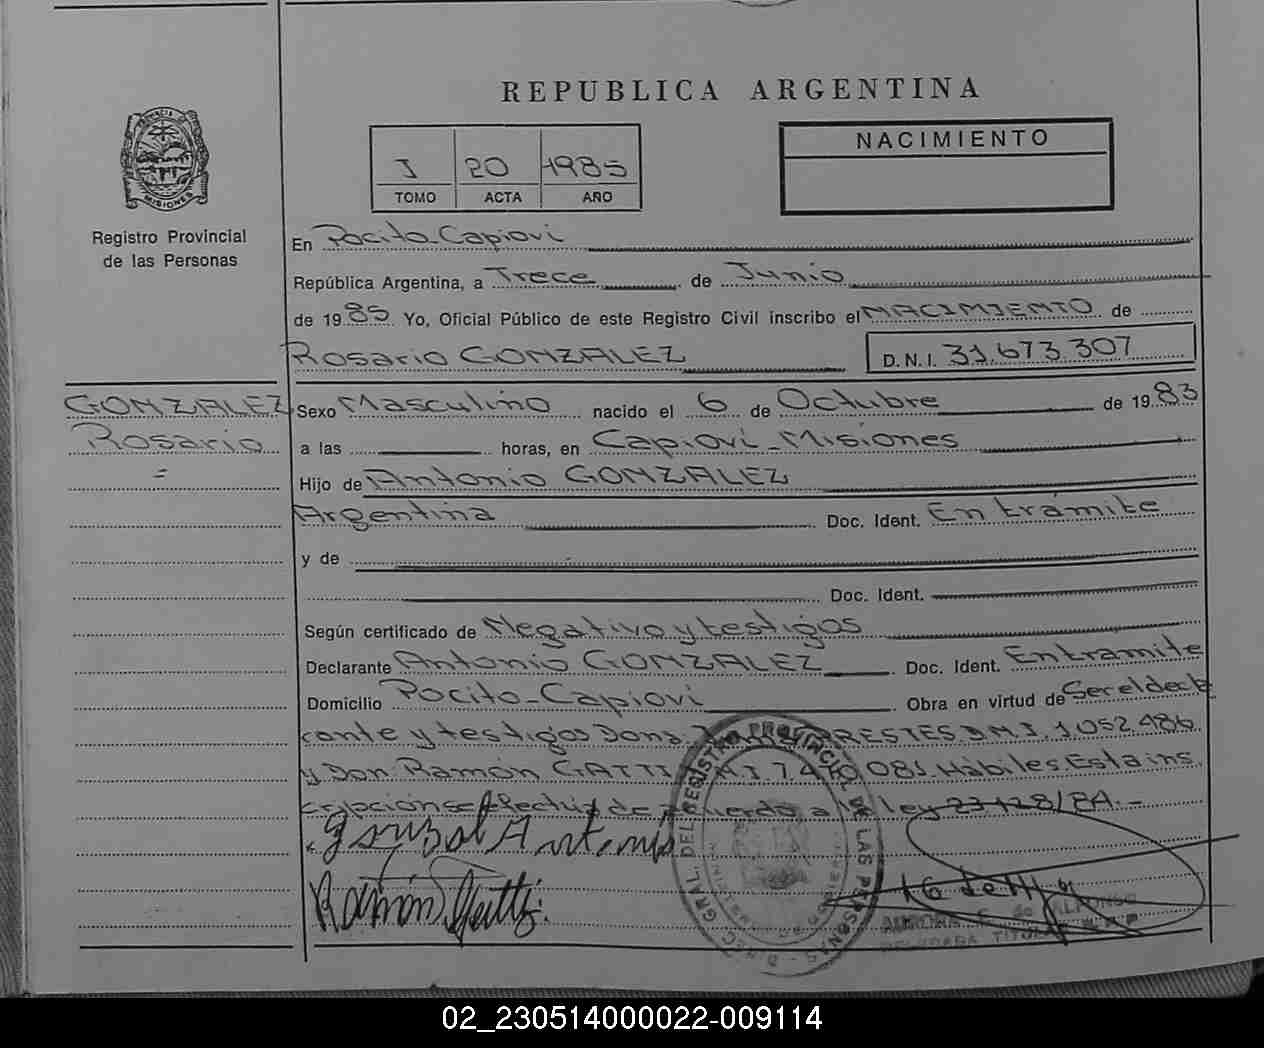 REPUBLICA ARGENTINA
PROVINCIA DE MISIONES
Registro Provincial
de las Personas
I 20 1985
TOMO ACTA AÑO
NACIMIENTO
En Pocito-Capiovi
República Argentina, a Trece de Junio
de 1985 Yo, Oficial Público de este Registro Civil inscribo el NACIMIENTO de
Rosario GONZALEZ D.N.I. 31.673.307
GONZALEZ
Rosario
=
Sexo Masculino nacido el 6 de Octubre de 1983
a las horas, en Capiovi-Misiones
Hijo de Antonio GONZALEZ
Argentina Doc. Ident. En trámite
y de
Doc. Ident.
Según certificado de Negativo y testigos
Declarante Antonio GONZALEZ Doc. Ident. En tramite
Domicilio Pocito-Capiovi Obra en virtud de Ser el decla
rante y testigos Dona PRESTES D.N.I. 1.052.486
y Don Ramón GATTI M.I 7.470.081. Hábiles Esta ins
cripción se efectúa de acuerdo a la ley 23128/84.-
Gonzal Antonio
Ramón Gatti
DIREC. GRAL. DEL REGISTRO PROVINCIAL DE LAS PERSONAS
AURORA de ALFONSO
DELEGADA TITULAR
02_230514000022-009114